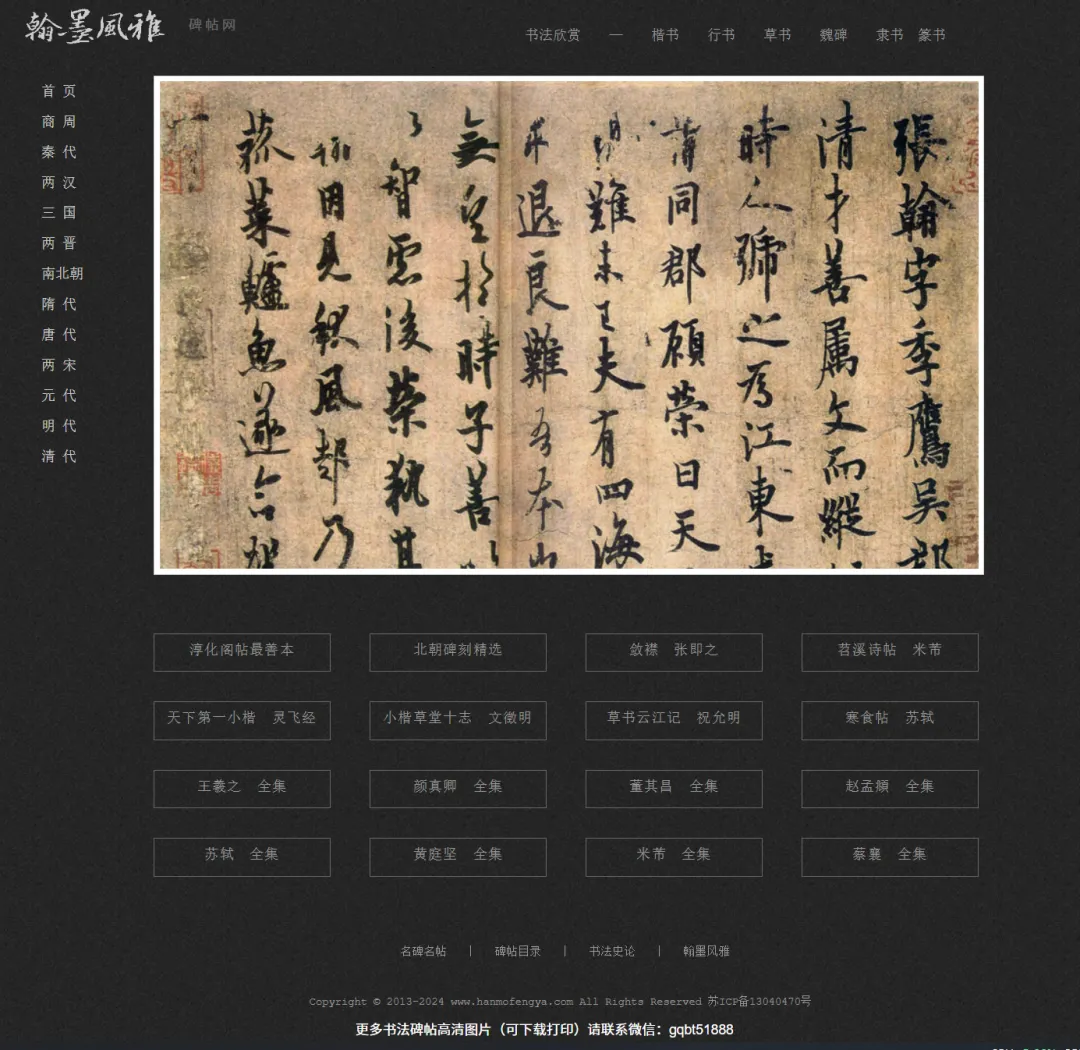 翰墨風雅
碑帖网
书法欣赏 一 楷书 行书 草书 魏碑 隶书 篆书
首 页
商 周
秦 代
两 汉
三 国
两 晋
南北朝
隋 代
唐 代
两 宋
元 代
明 代
清 代
張翰字季鷹吳郡
清才善屬文而縱
時人號之為江東步
同郡顧榮曰天
難未已夫有四海
求退良難吾本山
無望於時子善以
智慮後榮執其
因見秋風起乃
菰菜鱸魚遂命駕
淳化阁帖最善本 北朝碑刻精选 敛襟 张即之 苕溪诗帖 米芾
天下第一小楷 灵飞经 小楷草堂十志 文徵明 草书云江记 祝允明 寒食帖 苏轼
王羲之 全集 颜真卿 全集 董其昌 全集 赵孟頫 全集
苏轼 全集 黄庭坚 全集 米芾 全集 蔡襄 全集
名碑名帖 | 碑帖目录 | 书法史论 | 翰墨风雅
Copyright © 2013-2024 www.hanmofengya.com All Rights Reserved 苏ICP备13040470号
更多书法碑帖高清图片（可下载打印）请联系微信：gqbt51888